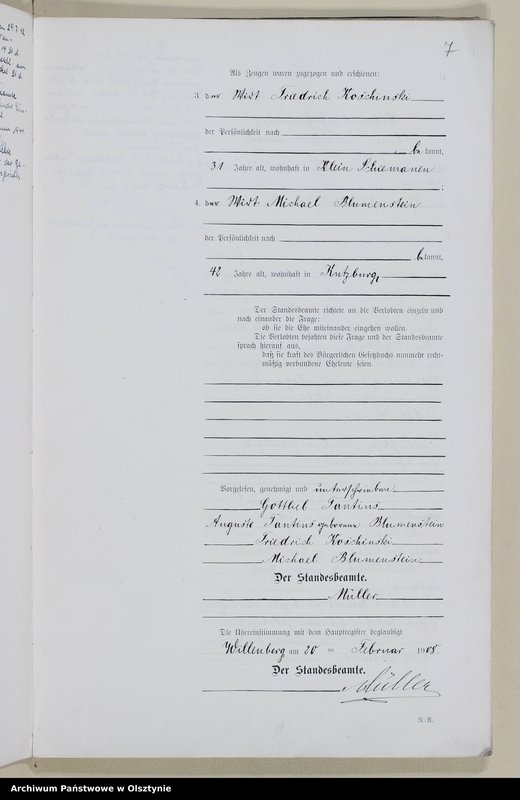 7
Als Zeugen waren zugezogen und erschienen:
3. der Wirt Friedrich Koschinski
der Persönlichkeit nach
be kannt,
31 Jahre alt, wohnhaft in Klein Schiemanen
;
4. der Wirt Michael Blumenstein
der Persönlichkeit nach
be kannt,
42 Jahre alt, wohnhaft in Kutzburg,
Der Standesbeamte richtete an die Verlobten einzeln und
nach einander die Frage:
ob sie die Ehe miteinander eingehen wollen.
Die Verlobten bejahten diese Frage und der Standesbeamte
sprach hierauf aus,
daß sie kraft des Bürgerlichen Gesetzbuchs nunmehr recht-
mäßig verbundene Eheleute seien.
Vorgelesen, genehmigt und unterschrieben
Gottlieb Tantius
Auguste Tantius geborene Blumenstein
Friedrich Koschinski
Michael Blumenstein
Der Standesbeamte.
Müller.
Die Übereinstimmung mit dem Hauptregister beglaubigt
Willenberg am 20 ten Februar 1905.
Der Standesbeamte.
Müller
Archiwum Państwowe w Olsztynie